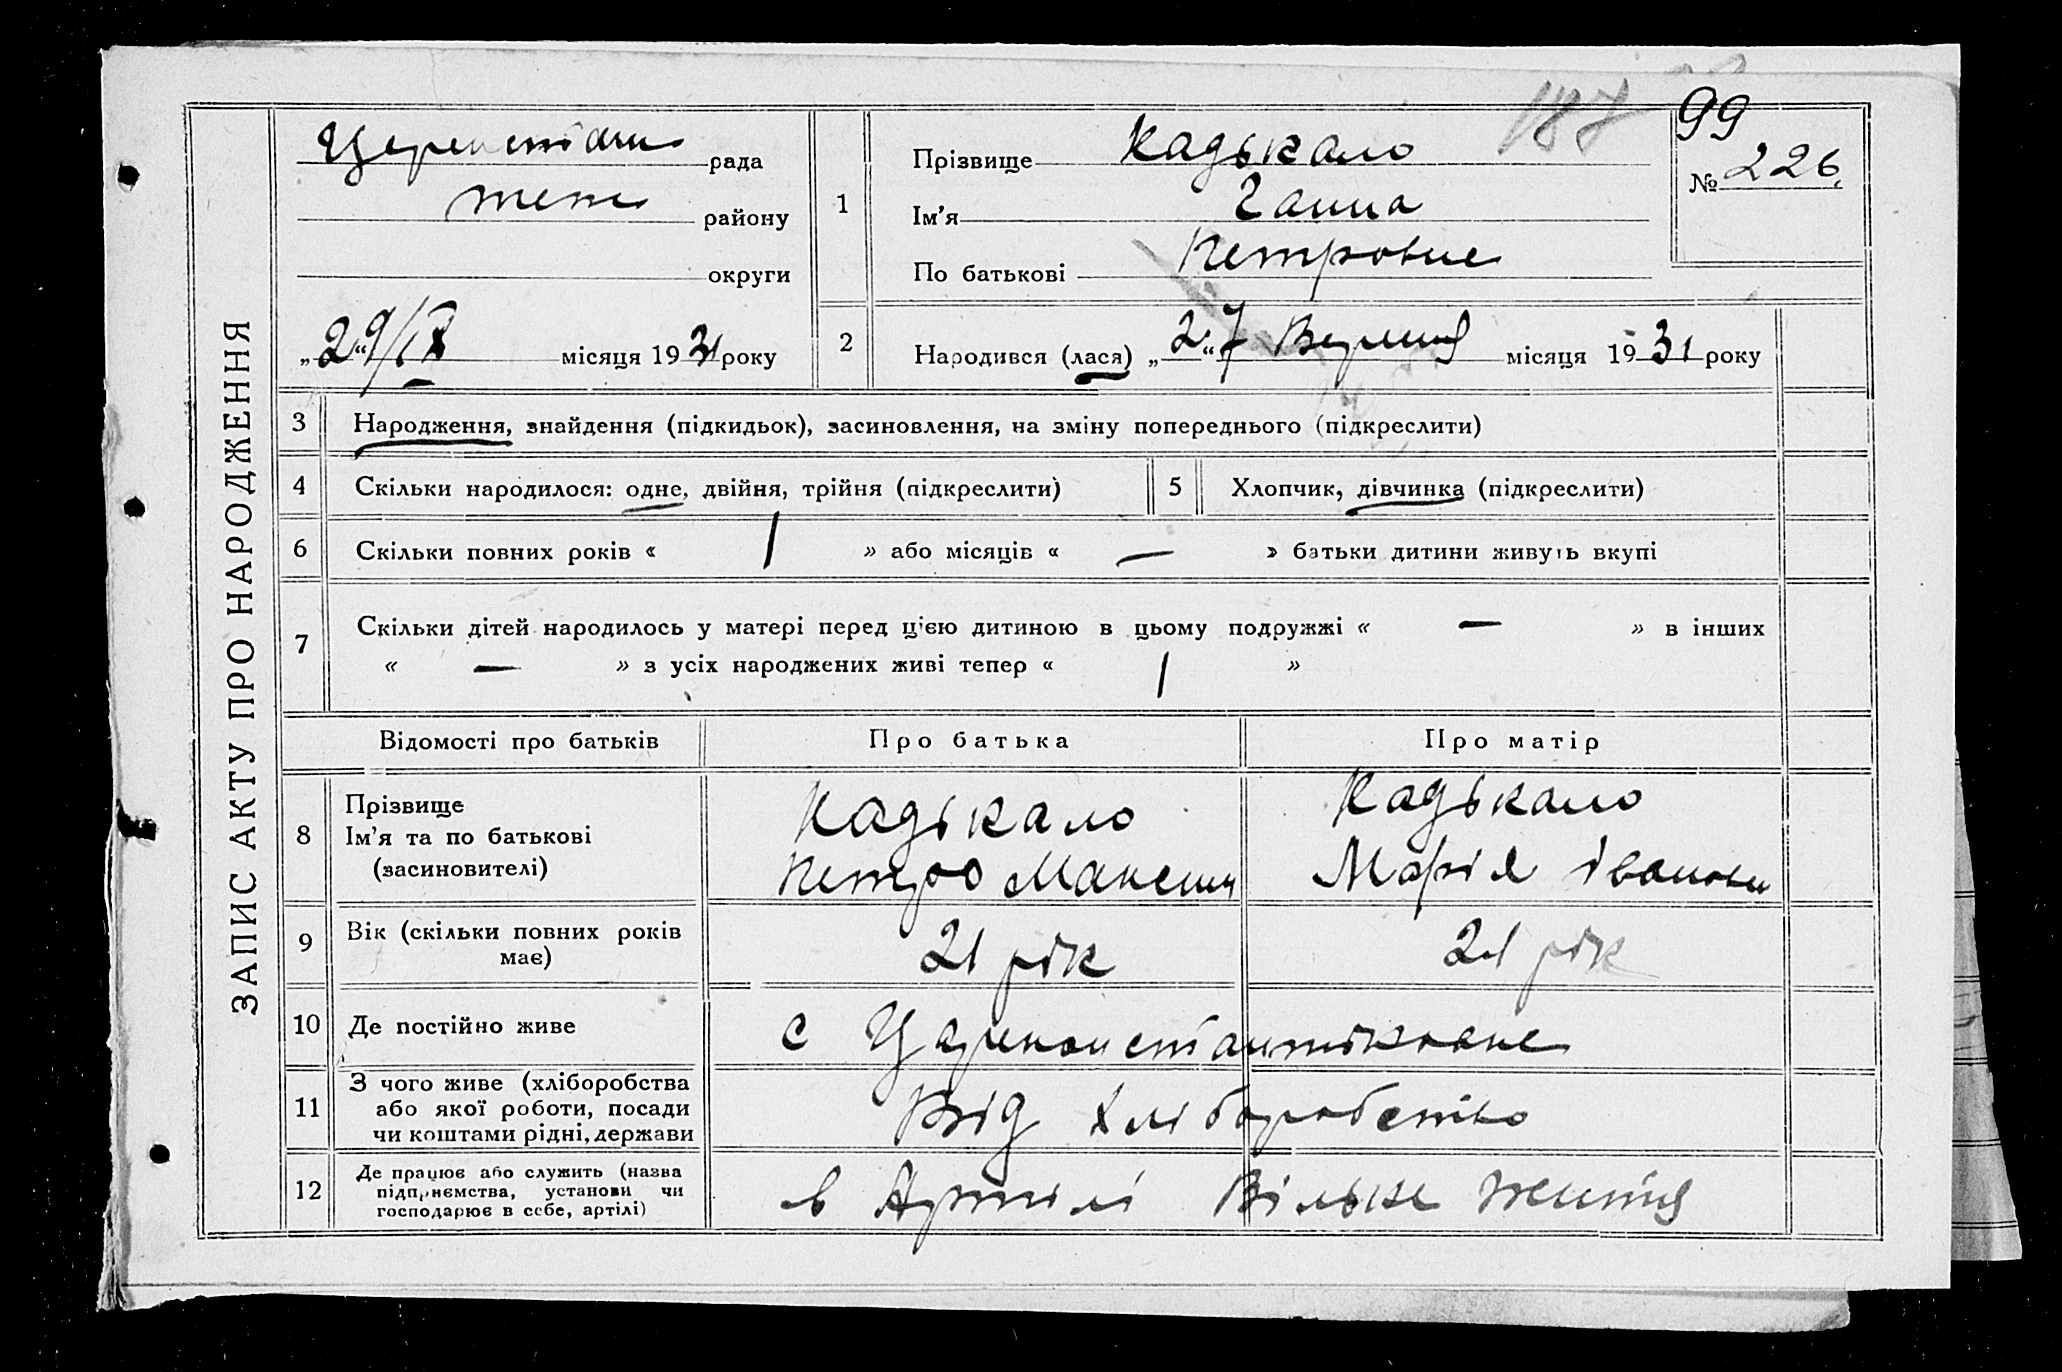 187 99
№ 226
ЗАПИС АКТУ ПРО НАРОДЖЕННЯ
рада
теж району
округи
„29/IX місяця 1931 року
1
Прізвище Кадькало
Ім'я Ганна
По батькові Петровне
2 Народився (лася) „27“ Вересня місяця 1931 року
3 Народження, знайдення (підкидьок), засиновлення, на зміну попереднього (підкреслити)
4 Скільки народилося: одне, двійня, трійня (підкреслити) 5 Хлопчик, дівчинка (підкреслити)
6 Скільки повних років « 1 » або місяців « — » батьки дитини живуть вкупі
7 Скільки дітей народилось у матері перед цією дитиною в цьому подружжі « — » в інших
« — » з усіх народжених живі тепер « 1 »
Відомості про батьків Про батька Про матір
8 Прізвище Ім'я та по батькові (засиновителі)
Кадькало
Петро Максим
Кадькало
Марія Іванови
9 Вік (скільки повних років має) 21 рік 21 рік
10 Де постійно живе с
11 З чого живе (хліборобства або якої роботи, посади чи коштами рідні, держави Від хліборобство
12 Де працює або служить (назва підприємства, установи чи господарює в себе, артілі) в Артилі Вільне життя